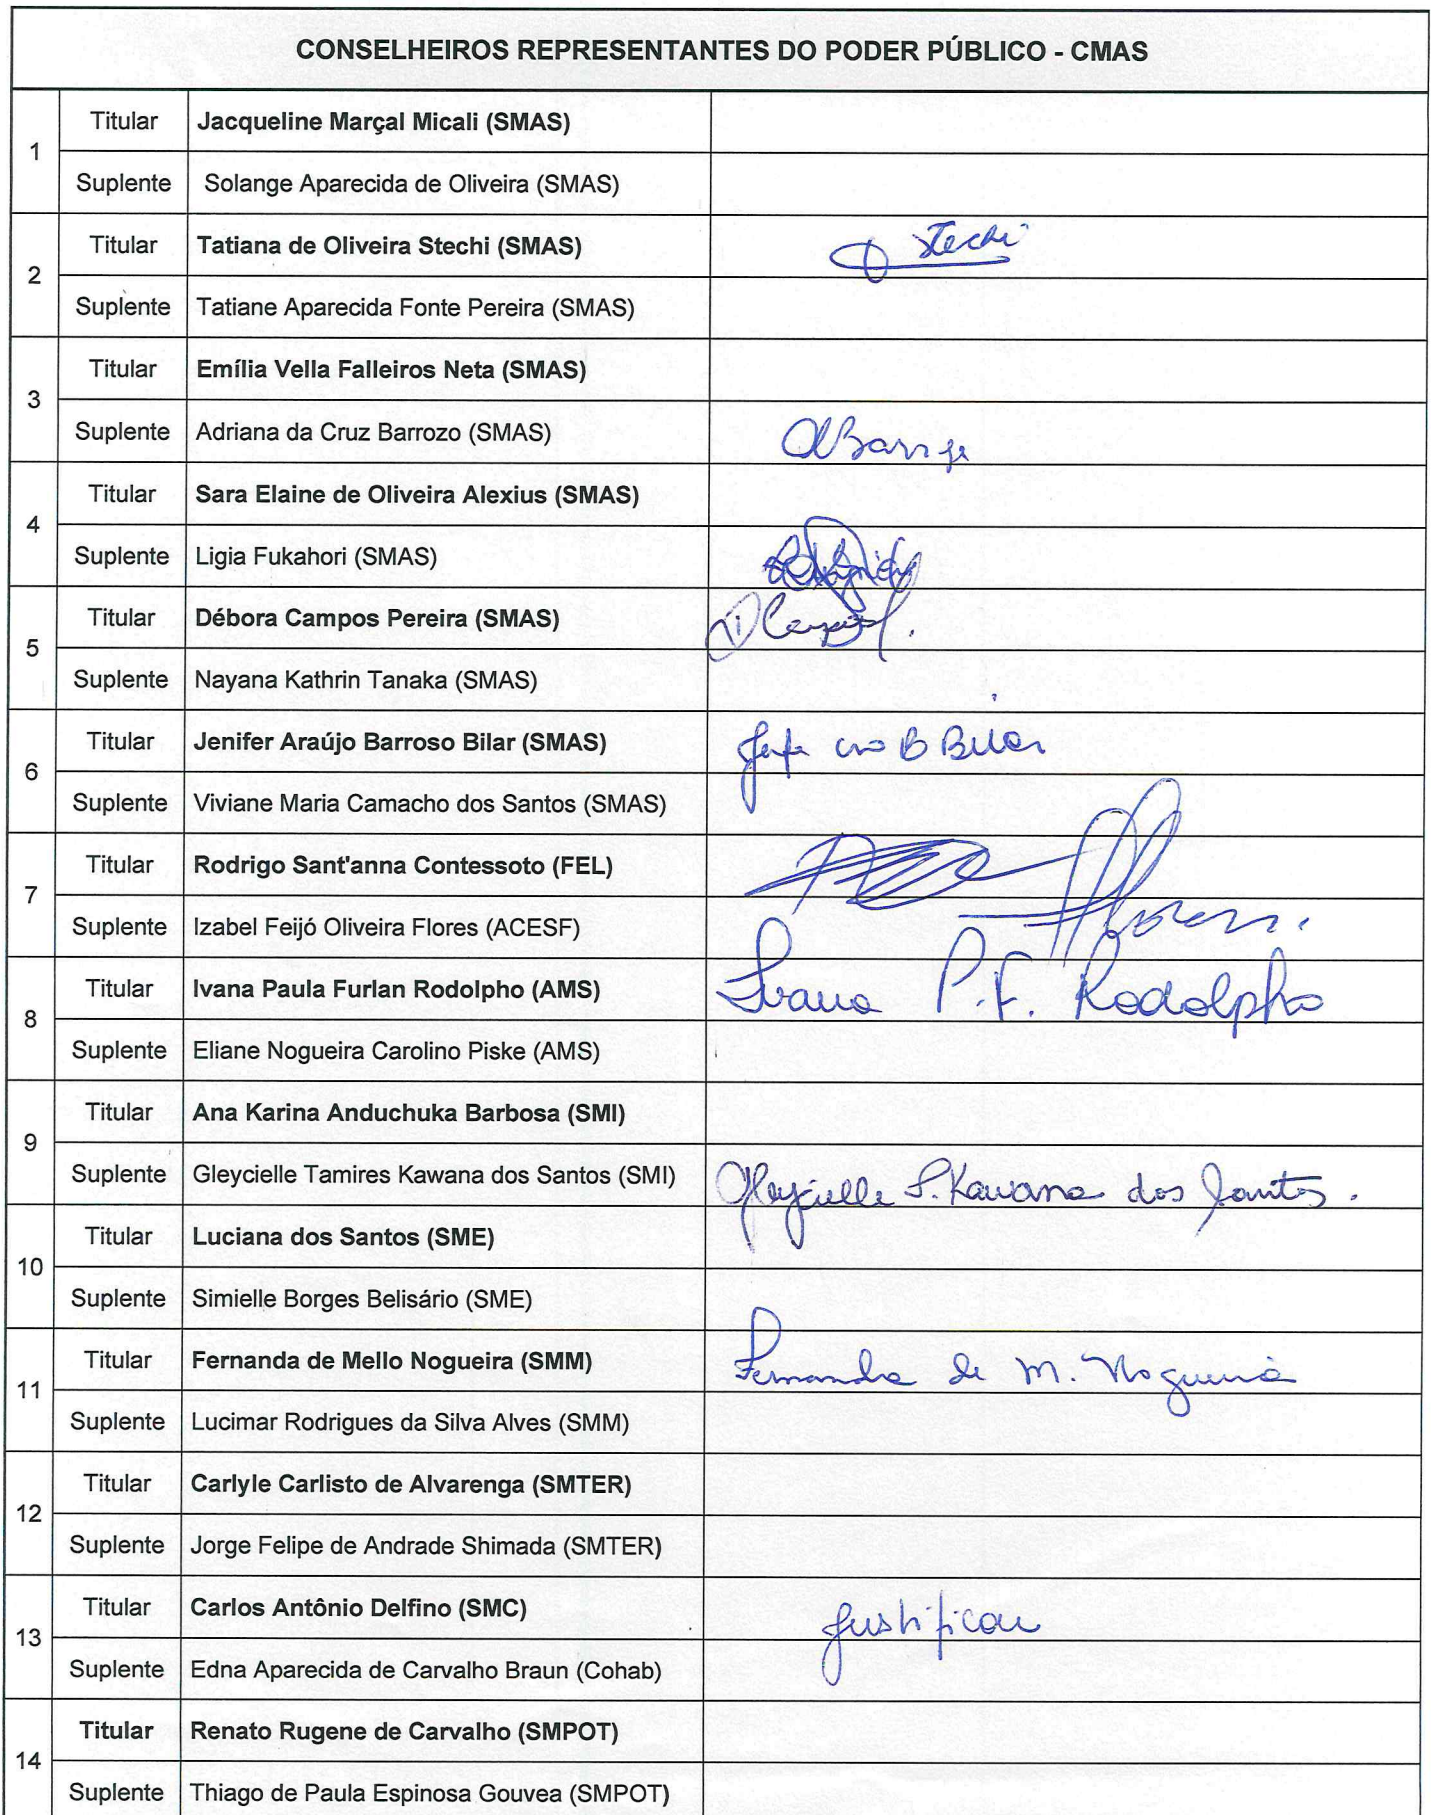 CONSELHEIROS REPRESENTANTES DO PODER PÚBLICO - CMAS
1
Titular Jacqueline Marçal Micali (SMAS)
Suplente Solange Aparecida de Oliveira (SMAS)
2
Titular Tatiana de Oliveira Stechi (SMAS) Stechi
Suplente Tatiane Aparecida Fonte Pereira (SMAS)
3
Titular Emília Vella Falleiros Neta (SMAS)
Suplente Adriana da Cruz Barrozo (SMAS)
4
Titular Sara Elaine de Oliveira Alexius (SMAS)
Suplente Ligia Fukahori (SMAS)
5
Titular Débora Campos Pereira (SMAS)
Suplente Nayana Kathrin Tanaka (SMAS)
6
Titular Jenifer Araújo Barroso Bilar (SMAS) B Bilar
Suplente Viviane Maria Camacho dos Santos (SMAS)
7
Titular Rodrigo Sant'anna Contessoto (FEL)
Suplente Izabel Feijó Oliveira Flores (ACESF)
8
Titular Ivana Paula Furlan Rodolpho (AMS) Ivana P.F. Rodolpho
Suplente Eliane Nogueira Carolino Piske (AMS)
9
Titular Ana Karina Anduchuka Barbosa (SMI)
Suplente Gleycielle Tamires Kawana dos Santos (SMI) Gleycielle T. Kawana dos Santos.
10
Titular Luciana dos Santos (SME)
Suplente Simielle Borges Belisário (SME)
11
Titular Fernanda de Mello Nogueira (SMM) Fernanda de M. Nogueira
Suplente Lucimar Rodrigues da Silva Alves (SMM)
12
Titular Carlyle Carlisto de Alvarenga (SMTER)
Suplente Jorge Felipe de Andrade Shimada (SMTER)
13
Titular Carlos Antônio Delfino (SMC) justificou
Suplente Edna Aparecida de Carvalho Braun (Cohab)
14
Titular Renato Rugene de Carvalho (SMPOT)
Suplente Thiago de Paula Espinosa Gouvea (SMPOT)